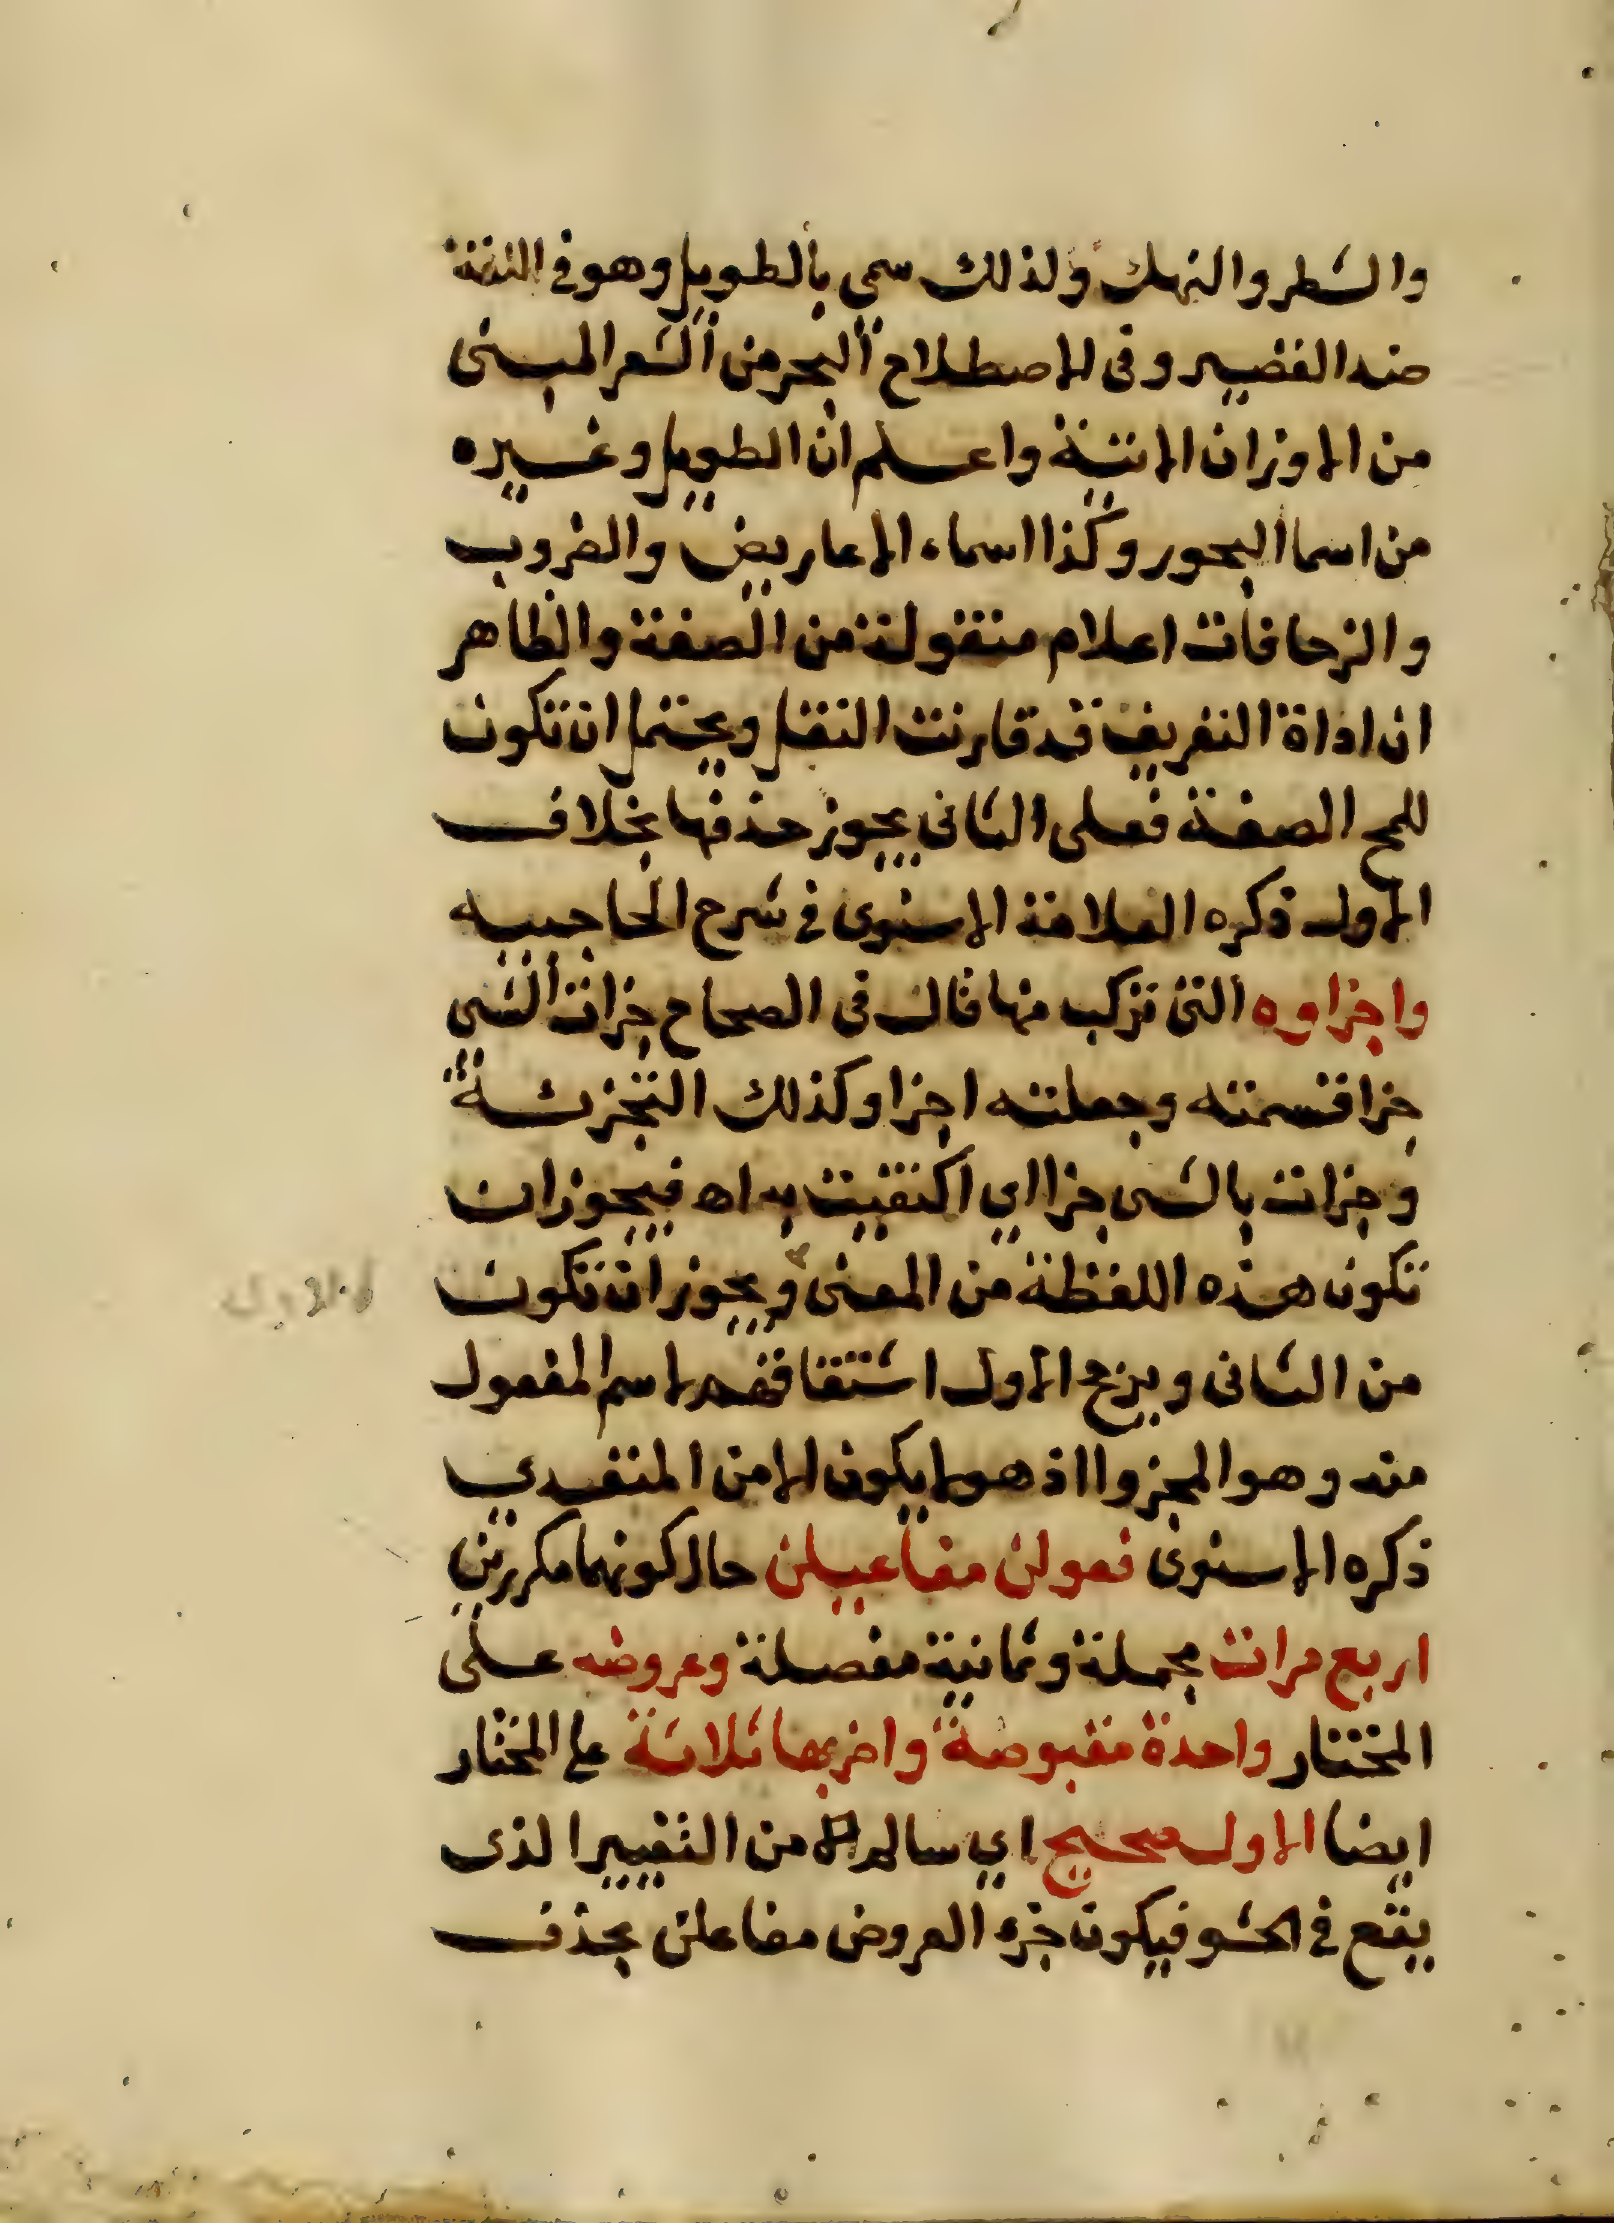 والشطر والنهك ولذلك سمي بالطويل وهو في اللغة
ضد القصير وفى الاصطلاح البحر من الشعر المبنى
من الاوزان الاتية واعلم ان الطويل وغيره
من اسما البحور وكذا اسماء الاعاريض والضروب
والزحافات اعلام منقولة من الصفة والظاهر
ان اداة التعريف قد قارنت النقل ويحتمل ان تكون
للمح الصفة فعلى الثانى يجوز حذفها بخلاف
الاول ذكره العلامة الاسنوى في شرح الحاجبيه
واجزاوه التى تركب منها قال فى الصحاح جزات الشى
جزا قسمته وجعلته اجزا وكذلك التجزئة
وجزات بالشى جزا اي اكتفيت به اه فيجوز ان
تكون هذه اللفظة من المعنى ويجوز ان تكون
الاول
من الثانى ويرجح الاول اشتقاقهم اسم المفعول
منه وهو المجزوا اذ هو لا يكون الا من المتعدي
ذكره الاسنوى فعولن مفاعيلن حال كونهما مكررين
اربع مرات مجملة وثمانية مفصلة وعروضه على
المختار واحدة مقبوضة واضربها ثلاثة على المختار
ايضا الاول صحيح اي سالم من التغيير الذى
يقع في الحشو فيكون جزء العروض مفاعلن بحذف